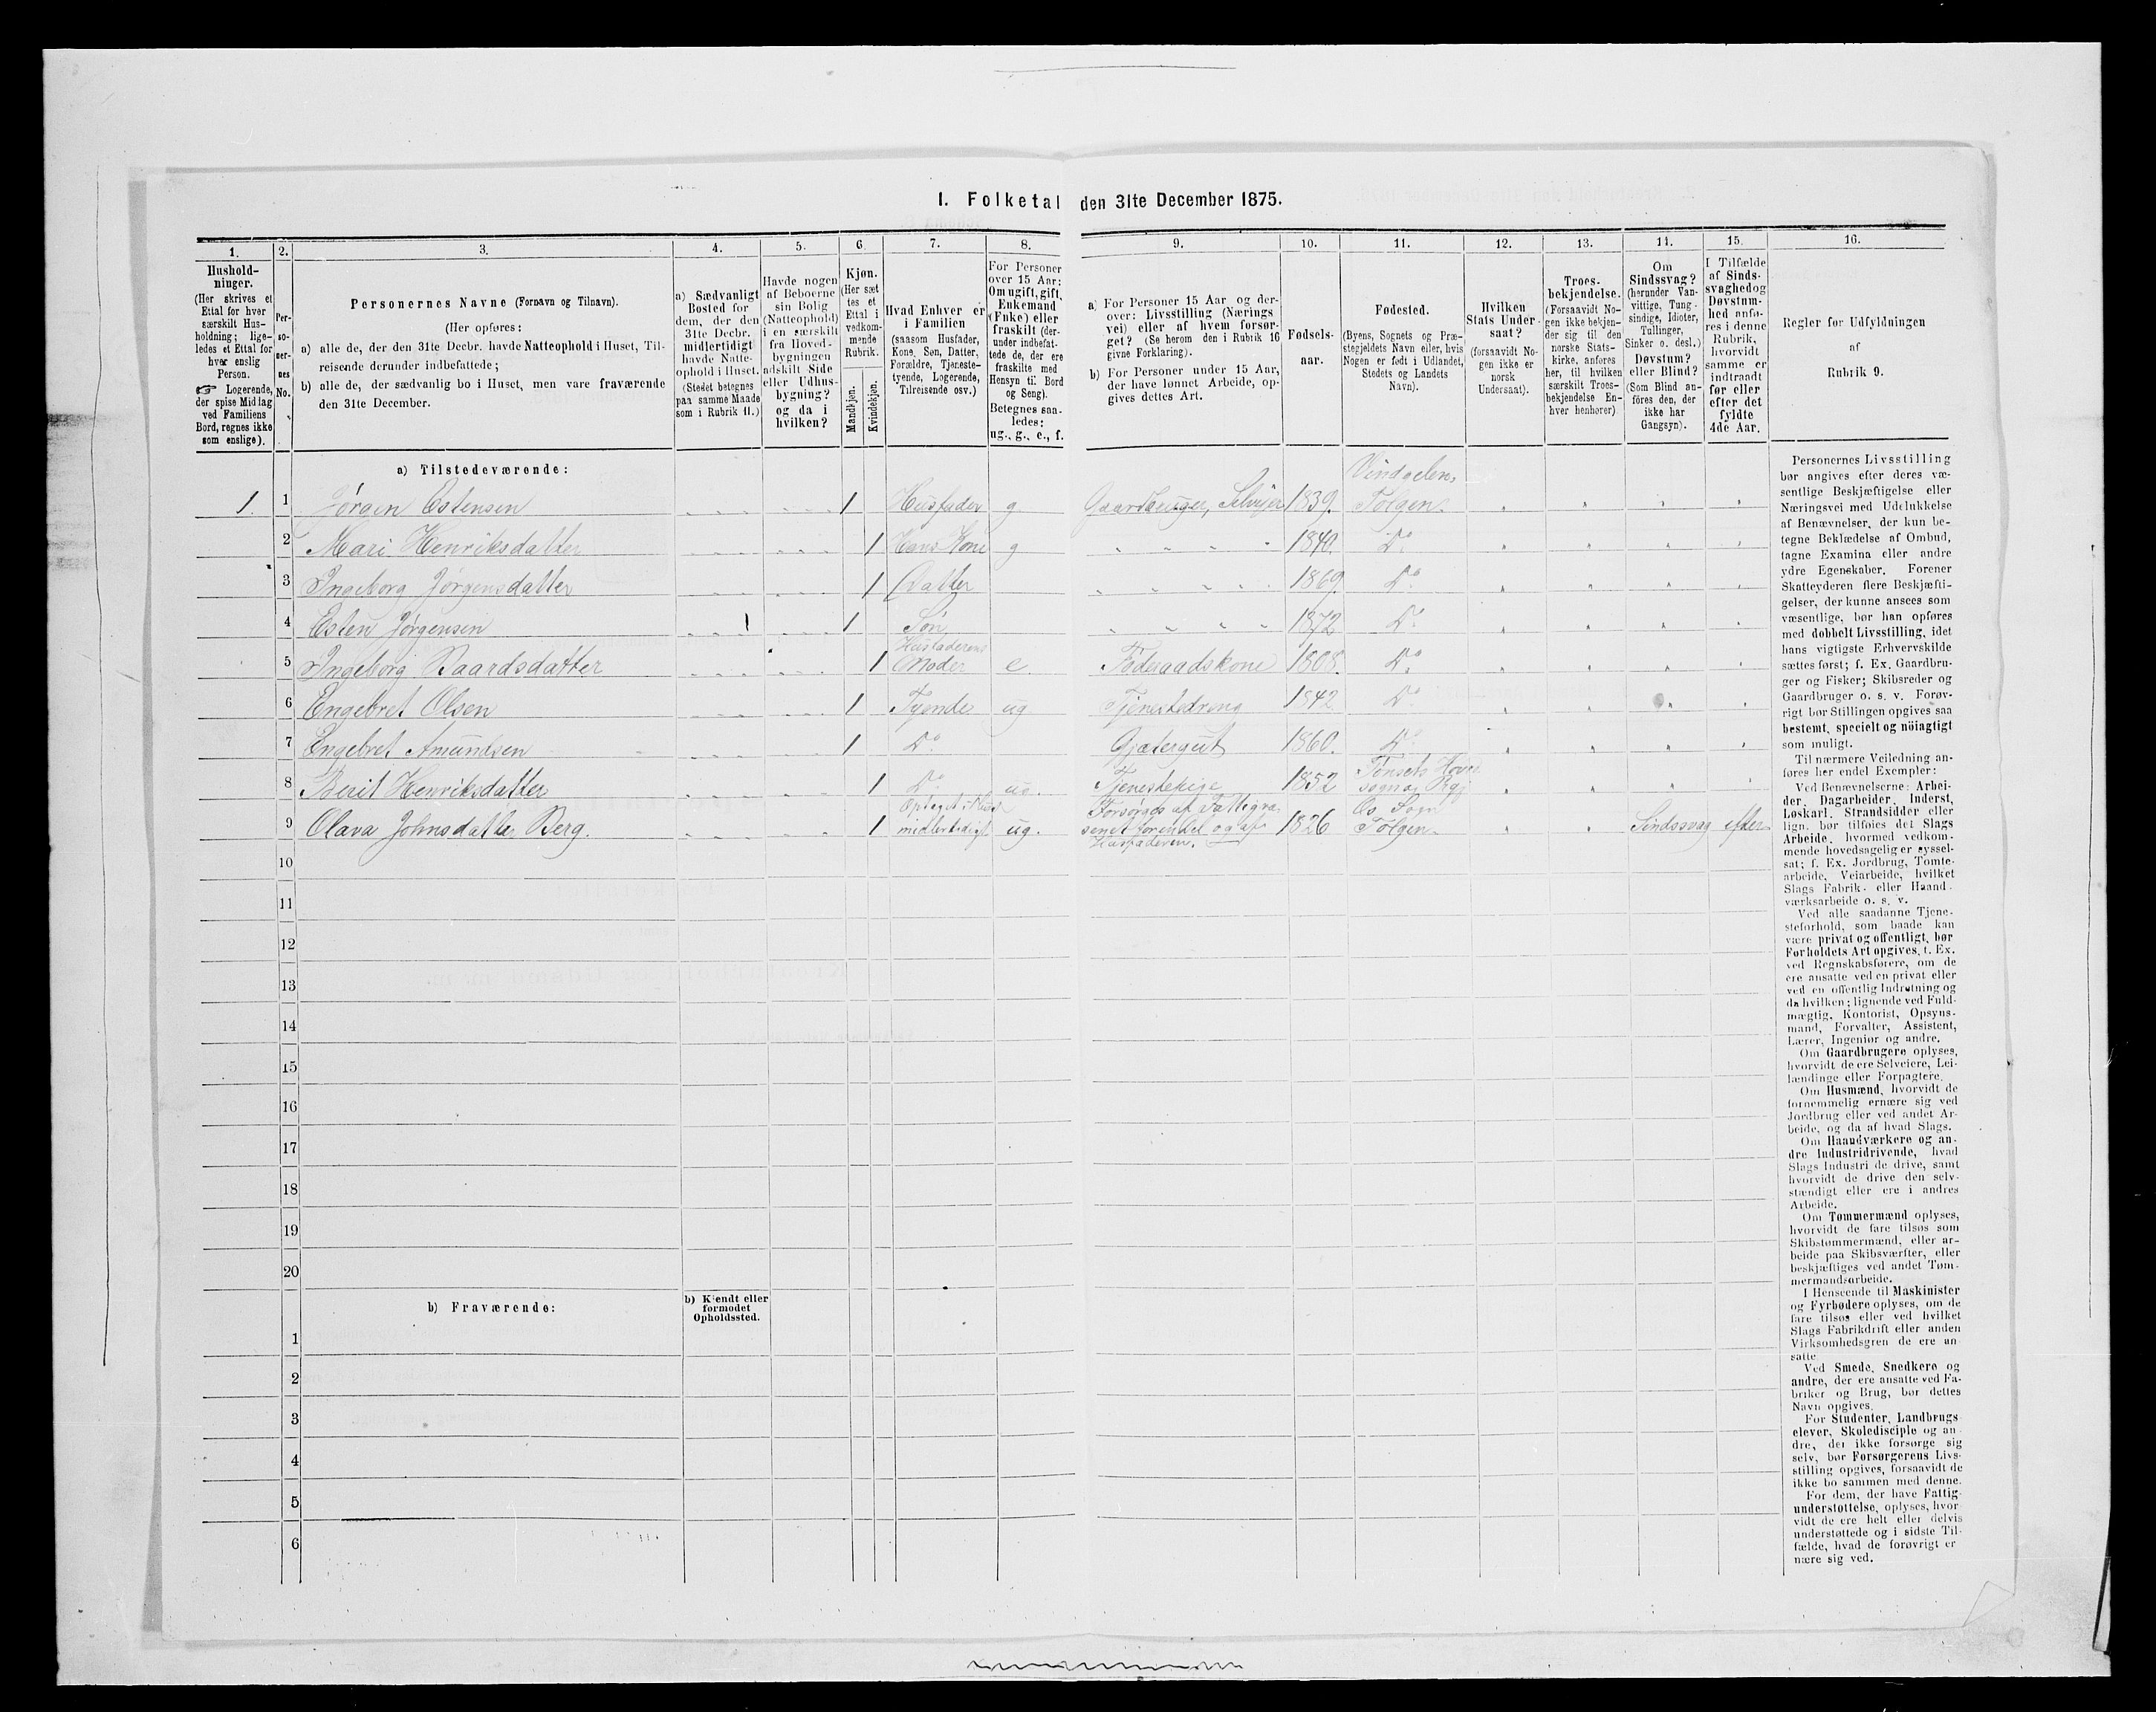 I. Folketal den 31te December 1875.
1.
Hushold-
ninger.
(Her skrives et
Ettal for hver
særskilt Hus-
holdning; lige-
ledes et Ettal for
hver enslig
Person.
☞ Logerende,
der spise Middag
ved Familiens
Bord, regnes ikke
som enslige).
2.
Per-
so-
ner-
nes
No.
3.
Personernes Navne (Fornavn og Tilnavn).
(Her opføres:
a) alle de, der den 31te Decbr. havde Natteophold i Huset, Til-
reisende derunder indbefattede;
b) alle de, der sædvanlig bo i Huset, men vare fraværende
den 31te December.
4.
a) Sædvanligt
Bosted for
dem, der den
31te Decbr.
midlertidigt
havde Natte-
ophold i Huset.
(Stedet betegnes
paa samme Maade
som i Rubrik 11.)
5.
Havde nogen
af Beboerne
sin Bolig
(Natteophold)
i en særskilt
fra Hoved-
bygningen
adskilt Side
eller Udhus-
bygning?
og da i
hvilken?
6.
Kjøn.
(Her sæt
tes et
Ettal i
vedkom-
mende
Rubrik.
Mandkjøn.
Kvindekjøn.
7.
Hvad Enhver er
i Familien
(saasom Husfader,
Kone, Søn, Datter,
Forældre, Tjeneste-
tyende, Logerende,
Tilreisende osv.)
8.
For Personer
over 15 Aar:
Om ugift, gift,
Enkemand
(Enke) eller
fraskilt (der-
under indbefat-
tede de, der ere
fraskilte med
Hensyn til Bord
og Seng).
Betegnes saa-
ledes:
ug., g., e., f.
9.
a) For Personer 15 Aar og der-
over: Livsstilling (Nærings
vei) eller af hvem forsør-
get? (Se herom den i Rubrik 16
givne Forklaring).
b) For Personer under 15 Aar,
der have lønnet Arbeide, op-
gives dettes Art.
10.
Fødsels-
aar.
11.
Fødested.
(Byens, Sognets og Præ-
stegjeldets Navn eller, hvis
Nogen er født i Udlandet,
Stedets og Landets
Navn).
12.
Hvilken
Stats Under-
saat?
(forsaavidt No-
gen ikke er
norsk
Undersaat).
13.
Troes-
bekjendelse.
(Forsaavidt No-
gen ikke bekjen-
der sig til den
norske Stats-
kirke, anføres
her, til hvilken
særskilt Troes-
bekjendelse En-
hver henhører)
14.
Om
Sindssvag?
(herunder Van-
vittige, Tung-
sindige, Idioter,
Tullinger,
Sinker o. desl.)
Døvstum?
eller Blind?
(Som Blind an-
føres den, der
ikke har
Gangsyn).
15.
I Tilfælde
af Sinds-
svaghed og
Døvstum-
hed anfø-
res i denne
Rubrik,
hvorvidt
samme er
indtraadt
før eller
efter det
fyldte
4de Aar.
16.
Regler for Udfyldningen
af
Rubrik 9.
a) Tilstedeværende:
1. 1 Jørgen Estensen 1 Husfader g Gaardbruger, Selveier 1839. Vindgelen, Tolgen.
2 Mari Henriksdatter 1 Hans Kone g " " " " 1840. Do.
3 Ingeborg Jørgensdatter 1 Datter " " " " 1869. Do.
4 Esten Jørgensen 1 Søn " " " " 1872 Do.
5 Ingeborg Baardsdatter 1 Husfaderens Moder e. Føderaadskone 1808. Do.
6 Engebret Olsen 1 Tyende ug Tjenestedreng 1842 Do.
7 Engebret Amundsen 1 Do. Gjætergut 1860. Do.
8 Berit Henriksdatter 1 Do. ug. Tjenestepige 1852 Tønsets Hoved sogn og Prgj
9 Olava Johnsdatter Berg. 1 Optaget i Huset midlertidigt ug. Forsørges af Fattigvæ senet for en Del og af Husfaderen. 1826 Os Sogn Tolgen. Sindssvag efter
10
11
12
13
14
15
16
17
18
19
20
b) Fraværende:
b) Kjendt eller
formodet
Opholdssted.
1
2
3
4
5
6
Personernes Livsstilling
bør angives efter deres væ-
sentlige Beskjæftigelse eller
Næringsvei med Udelukkelse
af Benævnelser, der kun be-
tegne Beklædelse af Ombud,
tagne Examina eller andre
ydre Egenskaber. Forener
Skatteyderen flere Beskjæfti-
gelser, der kunne ansees som
væsentlige, bør han opføres
med dobbelt Livsstilling, idet
hans vigtigste Erhvervskilde
sættes først; f. Ex. Gaardbru-
ger og Fisker; Skibsreder og
Gaardbruger o. s. v. Forøv-
rigt bør Stillingen opgives saa
bestemt, specielt og nöiagtigt
som muligt.
Til nærmere Veiledning an-
føres her endel Exempler:
Ved Benævnelserne: Arbei-
der, Dagarbeider, Inderst,
Løskarl, Strandsidder eller
lign. bør tilføies det Slags
Arbeide, hvormed vedkom-
mende hovedsagelig er syssel-
sat; f. Ex. Jordbrug, Tomte-
arbeide, Veiarbeide, hvilket
Slags Fabrik- eller Haand-
værksarbeide o. s. v.
Ved alle saadanne Tjene-
steforhold, som baade kan
være privat og offentligt, bør
Forholdets Art opgives, t. Ex.
ved Regnskabsførere, om de
ere ansatte ved en privat eller
ved en offentlig Indretning og
da hvilken; lignende ved Fuld-
mægtig, Kontorist, Opsyns-
mand, Forvalter, Assistent,
Lærer, Ingeniør og andre.
Om Gaardbrugere oplyses,
hvorvidt de ere Selveiere, Lei-
lændinge eller Forpagtere.
Om Husmænd, hvorvidt de
fornemmelig ernære sig ved
Jordbrug eller ved andet Ar-
beide, og da af hvad Slags.
Om Haandværkere og an-
dre Industridrivende, hvad
Slags Industri de drive, samt
hvorvidt de drive den selv-
stændigt eller ere i andres
Arbeide.
Om Tømmermænd oplyses,
hvorvidt de fare tilsøs som
Skibstømmermænd, eller ar-
beide paa Skibsværfter, eller
beskjæftiges ved andet Tøm-
mermandsarbeide.
I Henseende til Maskinister
og Fyrbødere oplyses, om de
fare tilsøs eller ved hvilket
Slags Fabrikdrift eller anden
Virksomhedsgren de ere an
satte
Ved Smede, Snedkere og
andre, der ere ansatte ved Fa-
briker og Brug, bør dettes
Navn opgives.
For Studenter, Landbrugs-
elever, Skoledisciple og an-
dre, der ikke forsørge sig
selv, bør Forsørgerens Livs-
stilling opgives, forsaavidt de
ikke bo sammen med denne.
For dem, der have Fattig-
understøttelse, oplyses, hvor-
vidt de ere helt eller delvis
understøttede og i sidste Til-
fælde, hvad de forøvrigt er
nære sig ved.